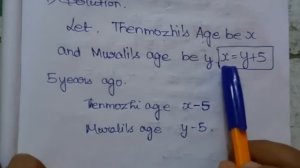 Solution.
Let, Thenmozhi's Age be x
and Murali's age be y x=y+5
5 years ago.
Thenmozhi age x-5
Murali's age y-5.